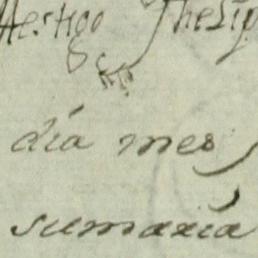 testigo Phelip
dia mes
sumaria